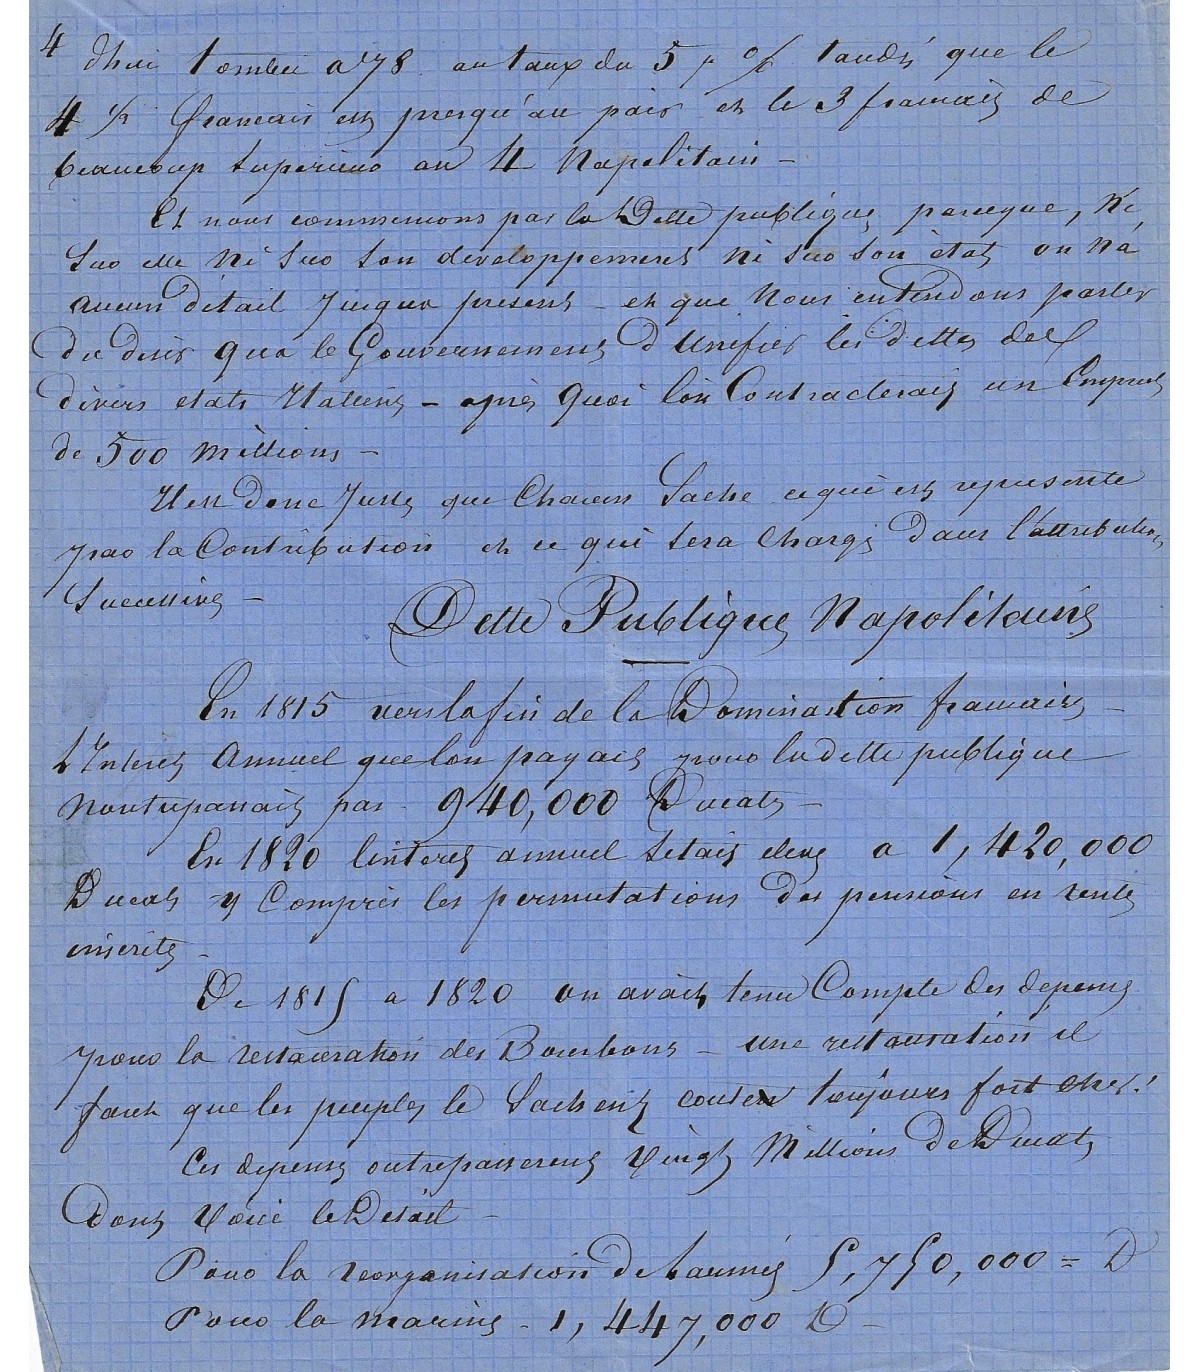 4
d'hui tombée a 78 au taux du 5 p % tandis que le
4 ½ francais est presqu'au pair et le 3 francais de
beaucoup superieur au 4 Napolitain –
Et nous commencons par la Dette publique parceque, Ni
sur elle Ni sur son développement Ni sur son état on N'a
aucun détail jusqu'a present – et que Nous entendons parler
du desir qu'a le Gouvernement d'Unifier les dettes des
divers etats Italiens – après Quoi l'on Contracterait un Emprunt
de 500 Millions –
Il est donc Juste que Chacun Sache ce qui est represente
par la Contribution et ce qui sera Chargé dans l'attribution
Successive –
Dette Publique Napolitaine
En 1815 vers la fin de la Domination francaise –
L'Interet Annuel que l'on payait pour la dette publique
n'outrepassait pas 940,000 Ducats –
En 1820 l'interet annuel s'etait elevé a 1,420,000
Ducats y Compris les permutations des pensions en rente
inscrite –
De 1815 a 1820 on avait tenu Compte des depenses
pour la restauration des Bourbons – une restauration il
faut que les peuples le Sachent coute toujours fort cher!
Ces depenses outrepasserent Vingt Millions de Ducats
dont Voici le Détail –
Pour la reorganisation de l'armée 5,750,000 = D
Pour la marine – 1,447,000 D –